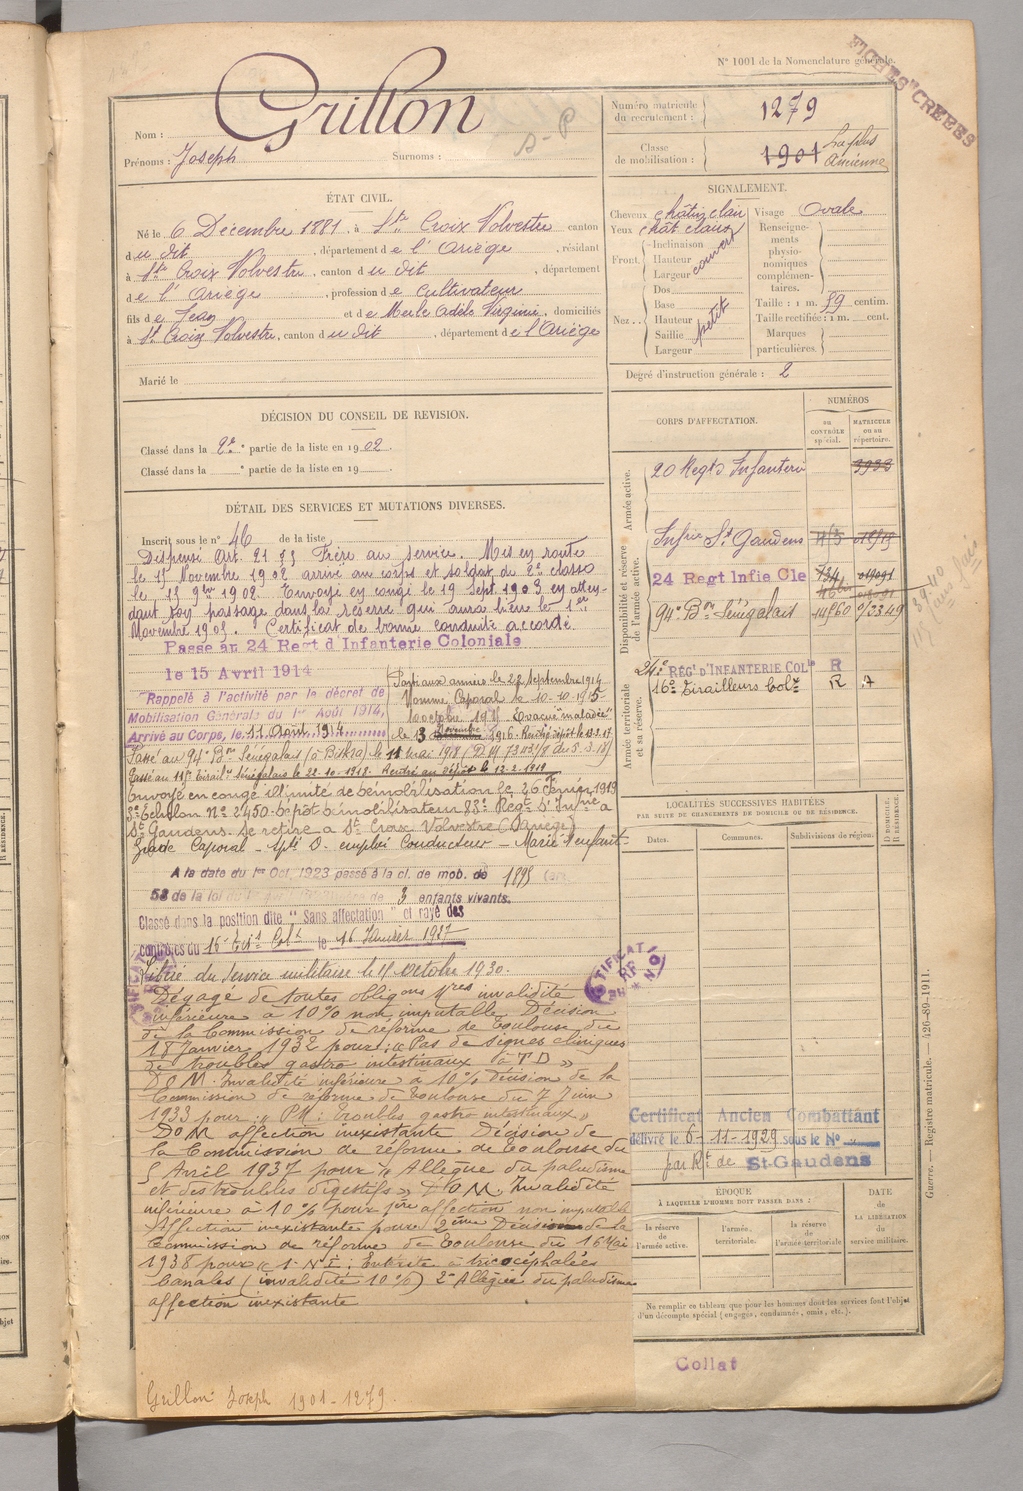 N° 1001 de la Nomenclature générale.
FICHES "CRÉÉES
Nom : Grillon
Prénoms : Joseph Surnoms :
S-P
Numéro matricule du recrutement : 1279
Classe de mobilisation : 1901 La plus Ancienne
ÉTAT CIVIL.
Né le 6 Décembre 1881, à Ste Croix Volvestre canton
du dit, département de l'Ariège, résidant
à Ste Croix Volvestre, canton du dit, département
de l'Ariège, profession de cultivateur
fils de Jean et de Merle Adèle Virginie, domiciliés
à Ste Croix Volvestre, canton du dit, département de l'Ariège
Marié le
SIGNALEMENT.
Cheveux châtin clair
Yeux chât clairs
Front. Inclinaison
Hauteur couvert
Largeur
Nez. Dos
Base
Hauteur petit
Saillie
Largeur
Visage Ovale
Renseignements physionomiques complémentaires.
Taille : 1 m. 59 centim.
Taille rectifiée : 1 m. cent.
Marques particulières.
Degré d'instruction générale : 2
DÉCISION DU CONSEIL DE REVISION.
Classé dans la 2e partie de la liste en 1902.
Classé dans la partie de la liste en 19
DÉTAIL DES SERVICES ET MUTATIONS DIVERSES.
Inscrit sous le n° 46 de la liste
Dispensé Art. 21 § 5 Frère au service. Mis en route
le 15 Novembre 1902 arrivé au corps et soldat de 2e classe
le 15 9bre 1902. Envoyé en congé le 19 Sept. 1903 en atten-
dant son passage dans la réserve qui aura lieu le 1er
Novembre 1905. Certificat de bonne conduite accordé.
Passe au 24 Regt d Infanterie Coloniale
le 15 Avril 1914
Rappelé à l'activité par le décret de
Mobilisation Générale du 1er Août 1914,
Arrivé au Corps, le 11 Août 1914
Parti aux armées le 22 septembre 1914
Nomme Caporal le 10-10-1915
10 octobre 1915 Evacué "maladie"
le 13 1916. Rentré dépôt le 13.2.17
Passé au 94e Bon Sénégalais (à Biskra) le 11 mai 1918
Passé au Tiraill. Sénégalais le 22-10-1918. Rentré au dépôt le 12-2-1919
Envoyé en congé illimité de démobilisation le 26 Février 1919
3e Echelon No 2450. Dépôt démobilisateur 83e Regt d'Infrie à
St Gaudens. Se retire à Ste Croix Volvestre (Ariège)
Grade Caporal - emploi Conducteur - Marié enfant
A la date du 1er Oct, 1923 passé à la cl. de mob. de 1895
58 de la loi du de 3 enfants vivants.
Classé dans la position dite "Sans affectation" et rayé des
contrôles du 16e Col. le 16 Février 1927
Libéré du service militaire le 15 octobre 1930.
Dégagé de toutes obligons mres invalidité
inférieure à 10% non imputable Décision
de la Commission de réforme de Toulouse du
18 Janvier 1932 pour : "Pas de signes cliniques
de troubles gastro intestinaux à TD"
DOM. Invalidité inférieure à 10% Décision de la
Commission de réforme de Toulouse du 7 Juin
1933 pour : "PM : Troubles gastro intestinaux"
DOM affection inexistante Décision de
la Commission de réforme de Toulouse du
5 Avril 1937 pour "Allègue du paludisme
et des troubles digestifs" DOM. Invalidité
inférieure à 10% pour 1ère affection non imputable
Affection inexistante pour 2ème Décision de la
Commission de réforme de Toulouse du 16 Mai
1938 pour "1° Entérite à tricocéphales
banales (invalidité 10%) 2° Allégué du paludisme
affection inexistante
Grillon Joseph 1901-1279.
CORPS D'AFFECTATION.
NUMÉROS
au CONTRÔLE spécial.
MATRICULE ou au répertoire.
Armée active.
20 Regt d'Infanterie 3933
Disponibilité et réserve de l'armée active.
Infrie St Gaudens
24 Regt Infie Cle 734 019091
94e Bon Sénégalais 14560 0/3349
Armée territoriale et sa réserve.
24e RÉGt D'INFANTERIE COLle R
16e Tirailleurs Col. R
LOCALITÉS SUCCESSIVES HABITÉES
PAR SUITE DE CHANGEMENTS DE DOMICILE OU DE RÉSIDENCE.
Dates. Communes. Subdivisions de région. D DOMICILE. R RÉSIDENCE.
CERTIFICATION RF
Certificat Ancien Combattant
délivré le 6-11-1929 sous le No
par Rt de St-Gaudens
ÉPOQUE
À LAQUELLE L'HOMME DOIT PASSER DANS :
la réserve de l'armée active.
l'armée territoriale.
la réserve de l'armée territoriale
DATE de LA LIBÉRATION du service militaire.
Ne remplir ce tableau que pour les hommes dont les services font l'objet
d'un décompte spécial (engagés, condamnés, omis, etc.).
Guerre. — Registre matricule. — 426-89-1911.
Collat